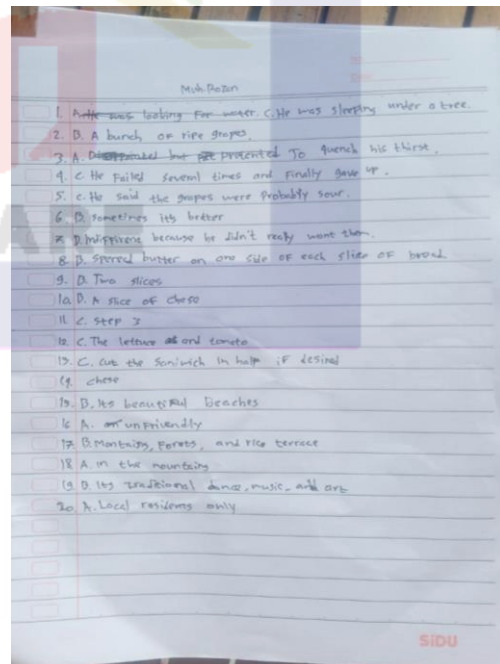 Muh. Rozan
1. A. He was looking For water. C. He was sleeping under a tree.
2. B. A bunch of ripe grapes.
3. A. but To quench his thirst.
4. C He Failed several times and Finally gave up.
5. C. He said the grapes were Probably sour.
6 B. Sometimes its better
7. D. because he didn't really want them.
8 B. Spread butter on one side OF each slice OF bread.
9. B. Two slices
10. D. A slice of chese
11 C. Step 3
12. C. The lettuce and tomato
13. C. Cut the Saniwich in half iF desired
14. chese
15. B. Its beautiful beaches
16 A. unfriendly
17 B. Montains, Forets, and rice terrace
18 A. in the mountains
19 B. Its Traditional dance, music, and art
20 A. Local residems only
SiDU